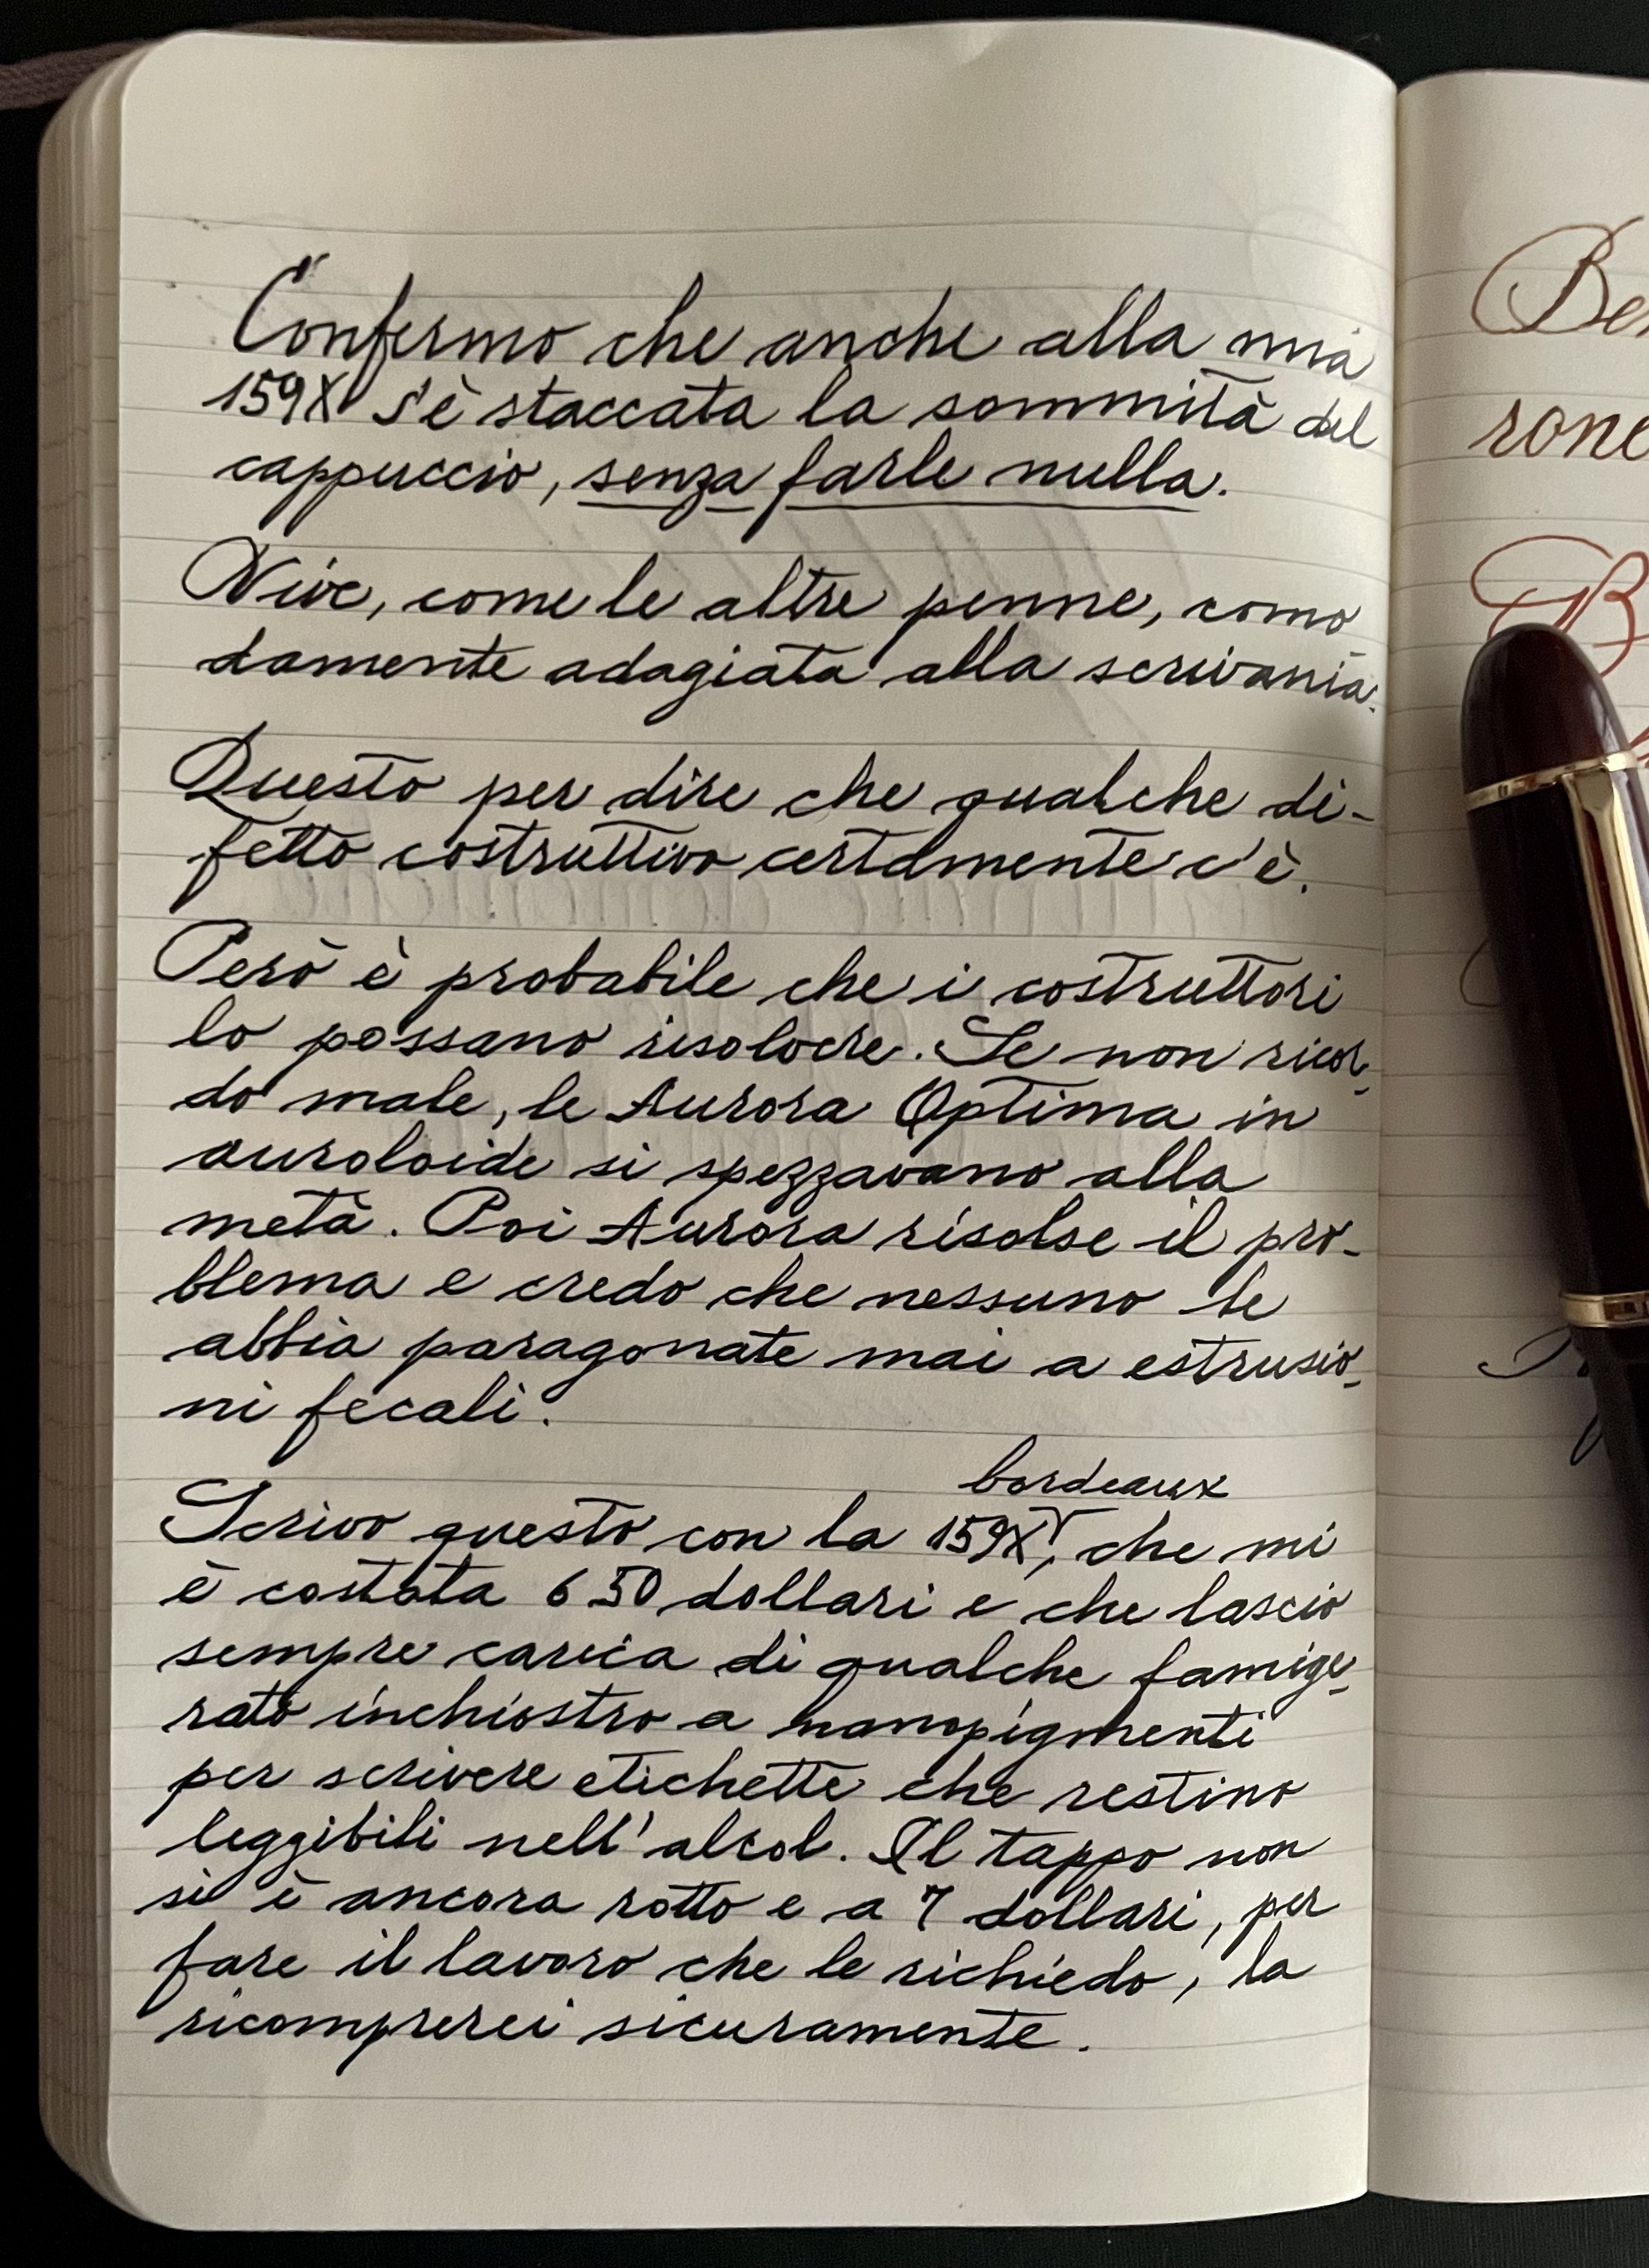 Confermo che anche alla mia
159X s'è staccata la sommità del
cappuccio, senza farle nulla.
Vive, come le altre penne, como
damente adagiata alla scrivania.
Questo per dire che qualche di-
fetto costruttivo certamente c'è.
Però è probabile che i costruttori
lo possano risolvere. Se non ricor-
do male, le Aurora Optima in
auroloide si spezzavano alla
metà. Poi Aurora risolse il pro-
blema e credo che nessuno le
abbia paragonate mai a estrusio-
ni fecali.
bordeaux
Scrivo questo con la 159X, che mi
è costata 6.50 dollari e che lascio
sempre carica di qualche famige-
rato inchiostro a nanopigmenti
per scrivere etichette che restino
leggibili nell'alcol. Il tappo non
si è ancora rotto e a 7 dollari, per
fare il lavoro che le richiedo, la
ricomprerei sicuramente.
Be
rone
B